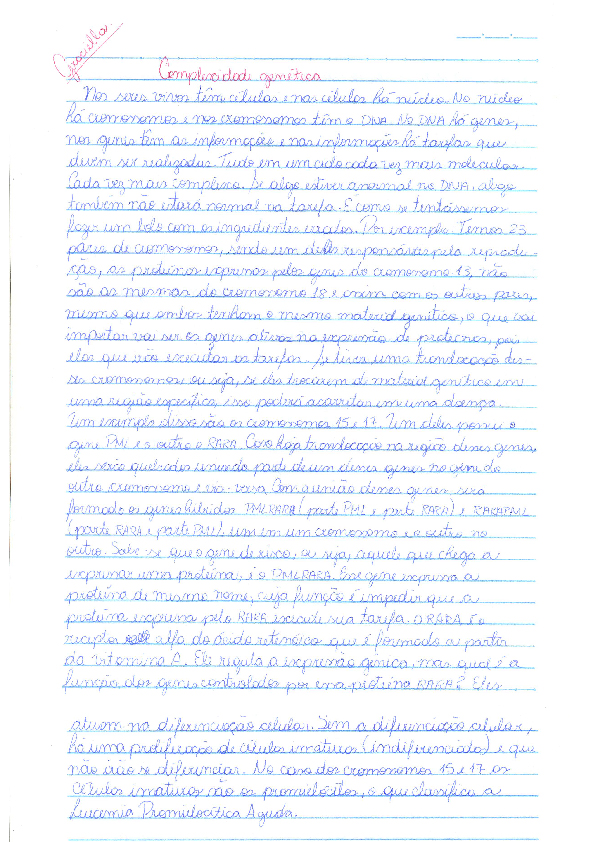 Graciella
Complexidade genética
Nos seres vivos têm células e nas células há núcleo. No núcleo
há cromonomos e nos cromonomos têm o DNA. No DNA há genes,
nos genes têm as informações e nas informações há tarefas que
devem ser realizadas. Tudo em um ciclo cada vez mais molecular.
Cada vez mais complexo. Se algo estiver anormal no DNA, algo
também não estará normal na tarefa. É como se tentássemos
fazer um bolo com os ingredientes errados. Por exemplo: Temos 23
pares de cromonomos, sendo um deles responsáveis pela reprodu-
ção, as proteínas expressas pelos genes do cromonomo 15, não
são as mesmas do cromonomo 18 e assim com os outros pares,
mesmo que ambos tenham o mesmo material genético, o que vai
importar vai ser os genes ativos na expressão de proteínas, pois
elas que vão executar as tarefas. Se tiver uma translocação des-
ses cromonomos ou seja, se eles trocarem de material genético em
uma região específica, isso poderá acarretar em uma doença.
Um exemplo disso são os cromonomos 15 e 17. Um deles possui o
gene PML e o outro o RARA. Caso haja translocação na região desses genes,
eles serão quebrados unindo parte de um desses genes no gene do
outro cromonomo e vice-versa. Com a união desses genes, será
formado os genes híbridos PMLRARA (parte PML e parte RARA) e RARAPML
(parte RARA e parte PML), um em um cromonomo e o outro no
outro. Sabe-se que o gene de risco, ou seja, aquele que chega a
expressar uma proteína, é o PMLRARA. Esse gene expressa a
proteína de mesmo nome, cuja função é impedir que a
proteína expressa pelo RARA execute sua tarefa. O RARA é o
receptor alfa do ácido retenóico que é formado a partir
da vitamina A. Ele regula a expressão gênica, mas qual é a
função dos genes controlados por essa proteína RARA? Eles
atuam na diferenciação celular. Sem a diferenciação celular,
há uma proliferação de células imaturas (indiferenciada) e que
não irão se diferenciar. No caso dos cromonomos 15 e 17 as
células imaturas são os promielócitos, o que classifica a
Leucemia Promielocítica Aguda.